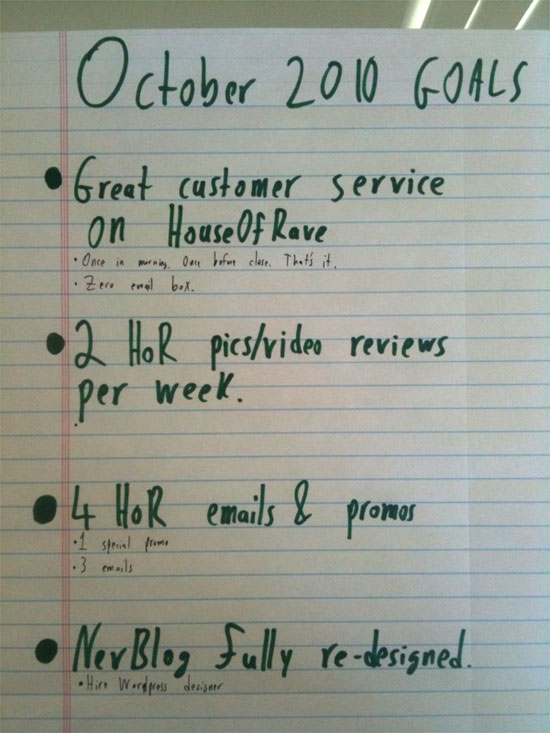 October 2010 GOALS
• Great customer service
on HouseOfRave
• Once in morning. Once before close. That's it.
• Zero email box.
• 2 HoR pics/video reviews
per week.
• 4 HoR emails & promos
• 1 special promo
• 3 emails
• NevBlog fully re-designed.
• Hire Wordpress designer